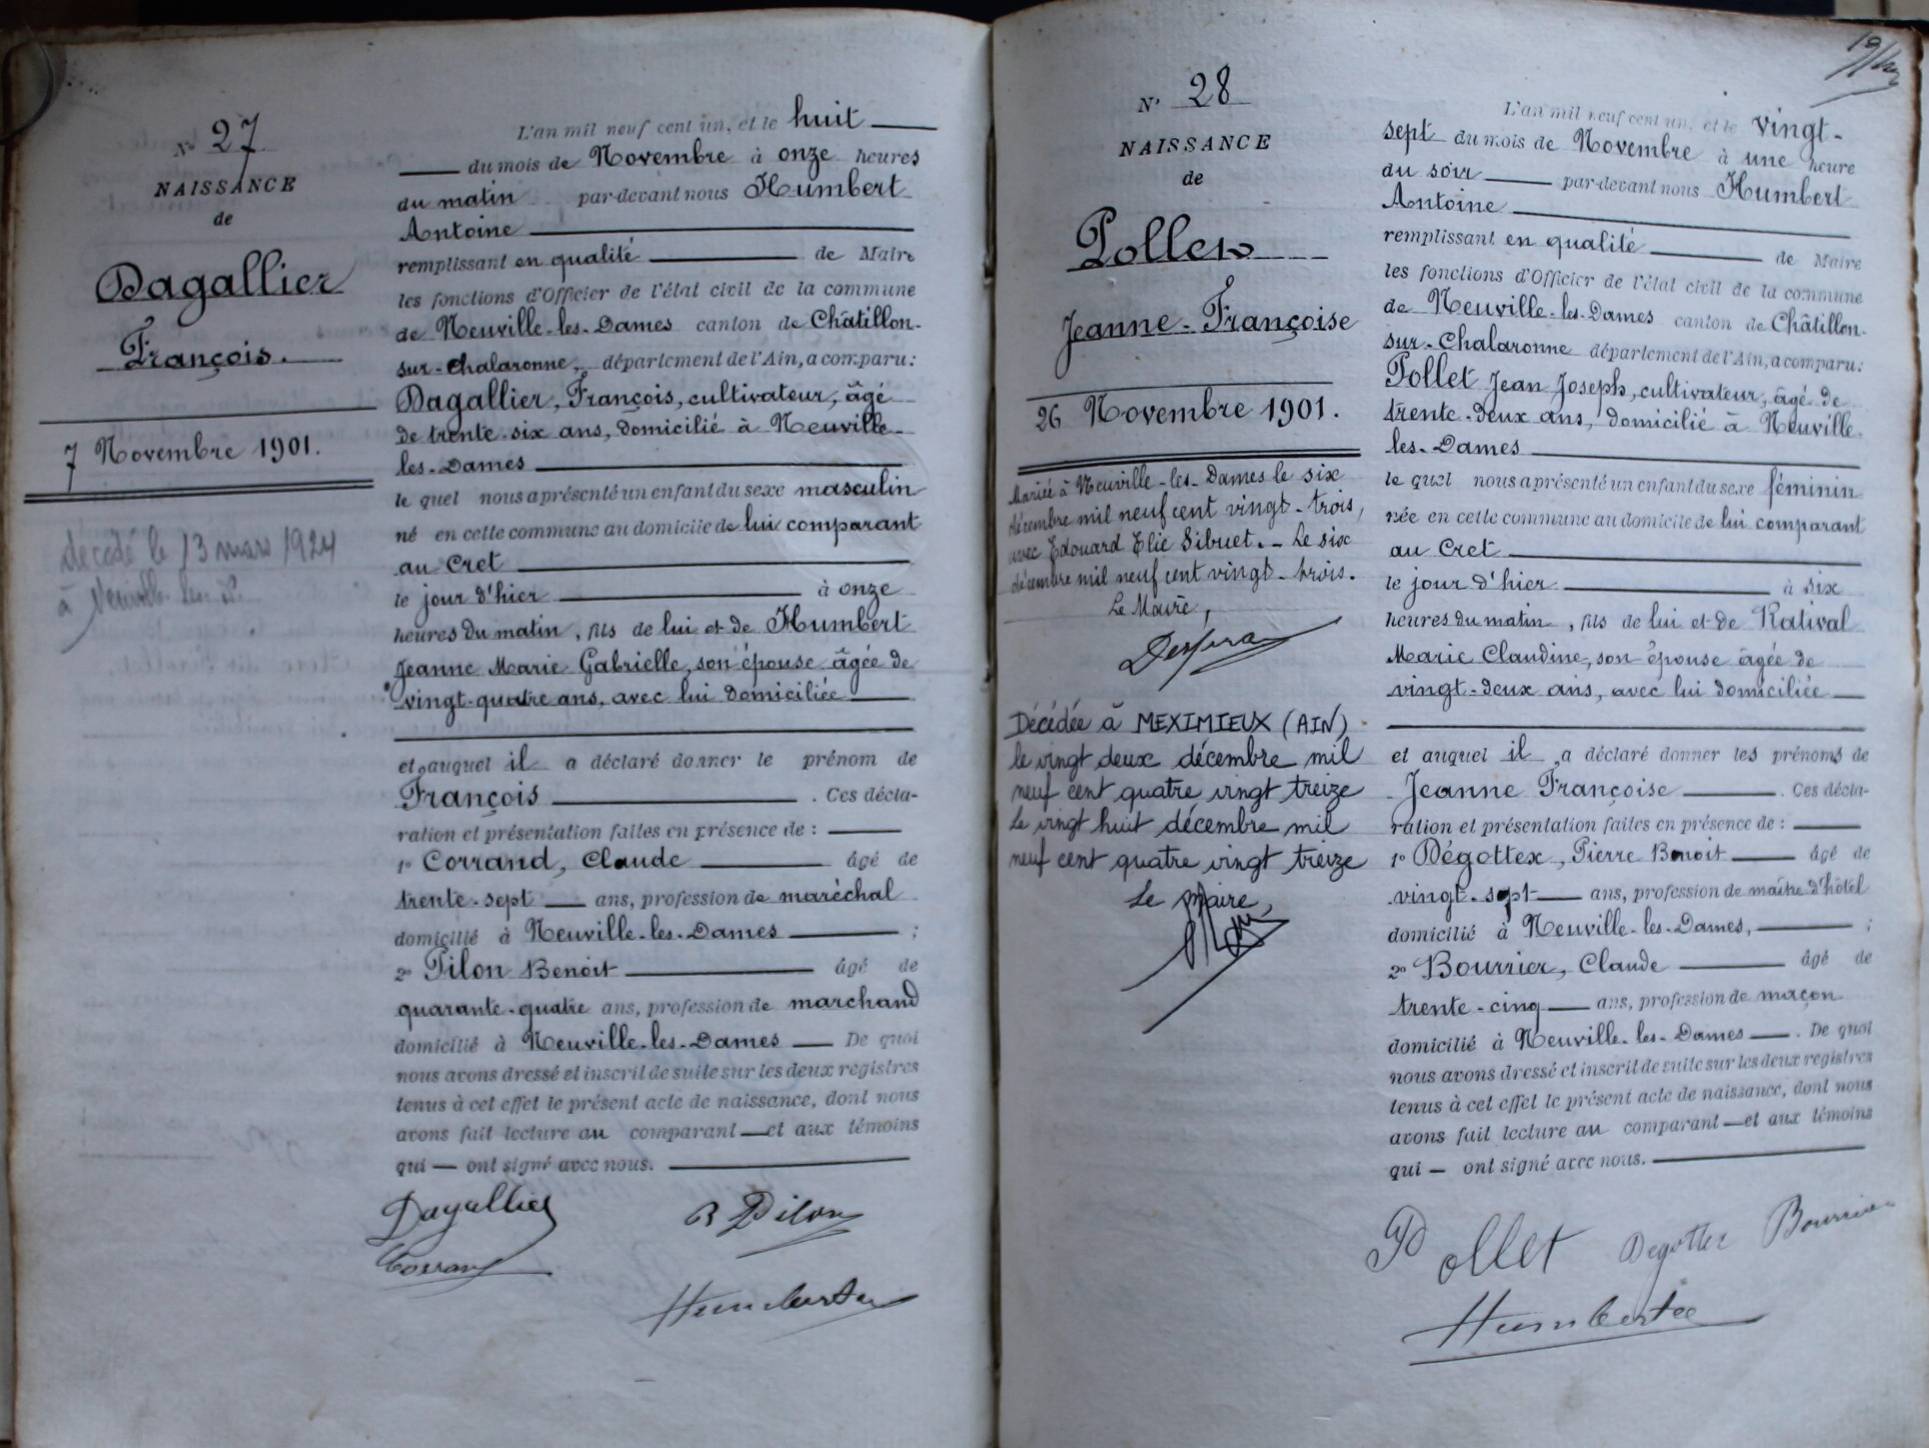 N° 27
NAISSANCE
de
Dagallier
François.
7 Novembre 1901.
décédé le 13 mars 1924
à Neuville-les-D.
L'an mil neuf cent un, et le huit
du mois de Novembre à onze heures
du matin par-devant nous Humbert
Antoine
remplissant en qualité de Maire
les fonctions d'Officier de l'état civil de la commune
de Neuville-les-Dames canton de Châtillon-
sur-Chalaronne, département de l'Ain, a comparu:
Dagallier, François, cultivateur, âgé
de trente-six ans, domicilié à Neuville-
les-Dames
le quel nous a présenté un enfant du sexe masculin
né en cette commune au domicile de lui comparant
au Cret
le jour d'hier à onze
heures du matin, fils de lui et de Humbert
Jeanne Marie Gabrielle, son épouse âgée de
vingt-quatre ans, avec lui domiciliée
et auquel il a déclaré donner le prénom de
François . Ces décla-
ration et présentation faites en présence de :
1° Corrand, Claude âgé de
trente-sept ans, profession de maréchal
domicilié à Neuville-les-Dames ;
2° Pilon Benoit âgé de
quarante-quatre ans, profession de marchand
domicilié à Neuville-les-Dames De quoi
nous avons dressé et inscrit de suite sur les deux registres
tenus à cet effet le présent acte de naissance, dont nous
avons fait lecture au comparant et aux témoins
qui ont signé avec nous.
Dagallier B Pilon
Corrand
Humbert
N° 28
NAISSANCE
de
Pollet
Jeanne-Françoise
26 Novembre 1901.
Mariée à Neuville-les-Dames le six
décembre mil neuf cent vingt-trois,
avec Edouard Elie Sibuet. - Le six
décembre mil neuf cent vingt-trois.
Le Maire,
Décédée à MEXIMIEUX (AIN)
le vingt deux décembre mil
neuf cent quatre vingt treize
Le vingt huit décembre mil
neuf cent quatre vingt treize
Le Maire,
L'an mil neuf cent un, et le vingt-
sept du mois de Novembre à une heure
du soir par-devant nous Humbert
Antoine
remplissant en qualité de Maire
les fonctions d'Officier de l'état civil de la commune
de Neuville-les-Dames canton de Châtillon-
sur-Chalaronne département de l'Ain, a comparu:
Pollet Jean Joseph, cultivateur, âgé de
trente-deux ans, domicilié à Neuville-
les-Dames
le quel nous a présenté un enfant du sexe féminin
née en cette commune au domicile de lui comparant
au Cret
le jour d'hier à six
heures du matin, fils de lui et de Ratival
Marie Claudine, son épouse âgée de
vingt-deux ans, avec lui domiciliée
et auquel il a déclaré donner les prénoms de
Jeanne Françoise . Ces décla-
ration et présentation faites en présence de :
1° Dégottex, Pierre Benoit âgé de
vingt-sept ans, profession de maître d'hôtel
domicilié à Neuville-les-Dames, ;
2° Bourrier, Claude âgé de
trente-cinq ans, profession de maçon
domicilié à Neuville-les-Dames . De quoi
nous avons dressé et inscrit de suite sur les deux registres
tenus à cet effet le présent acte de naissance, dont nous
avons fait lecture au comparant et aux témoins
qui ont signé avec nous.
Pollet Degottex Bourrier
Humbert